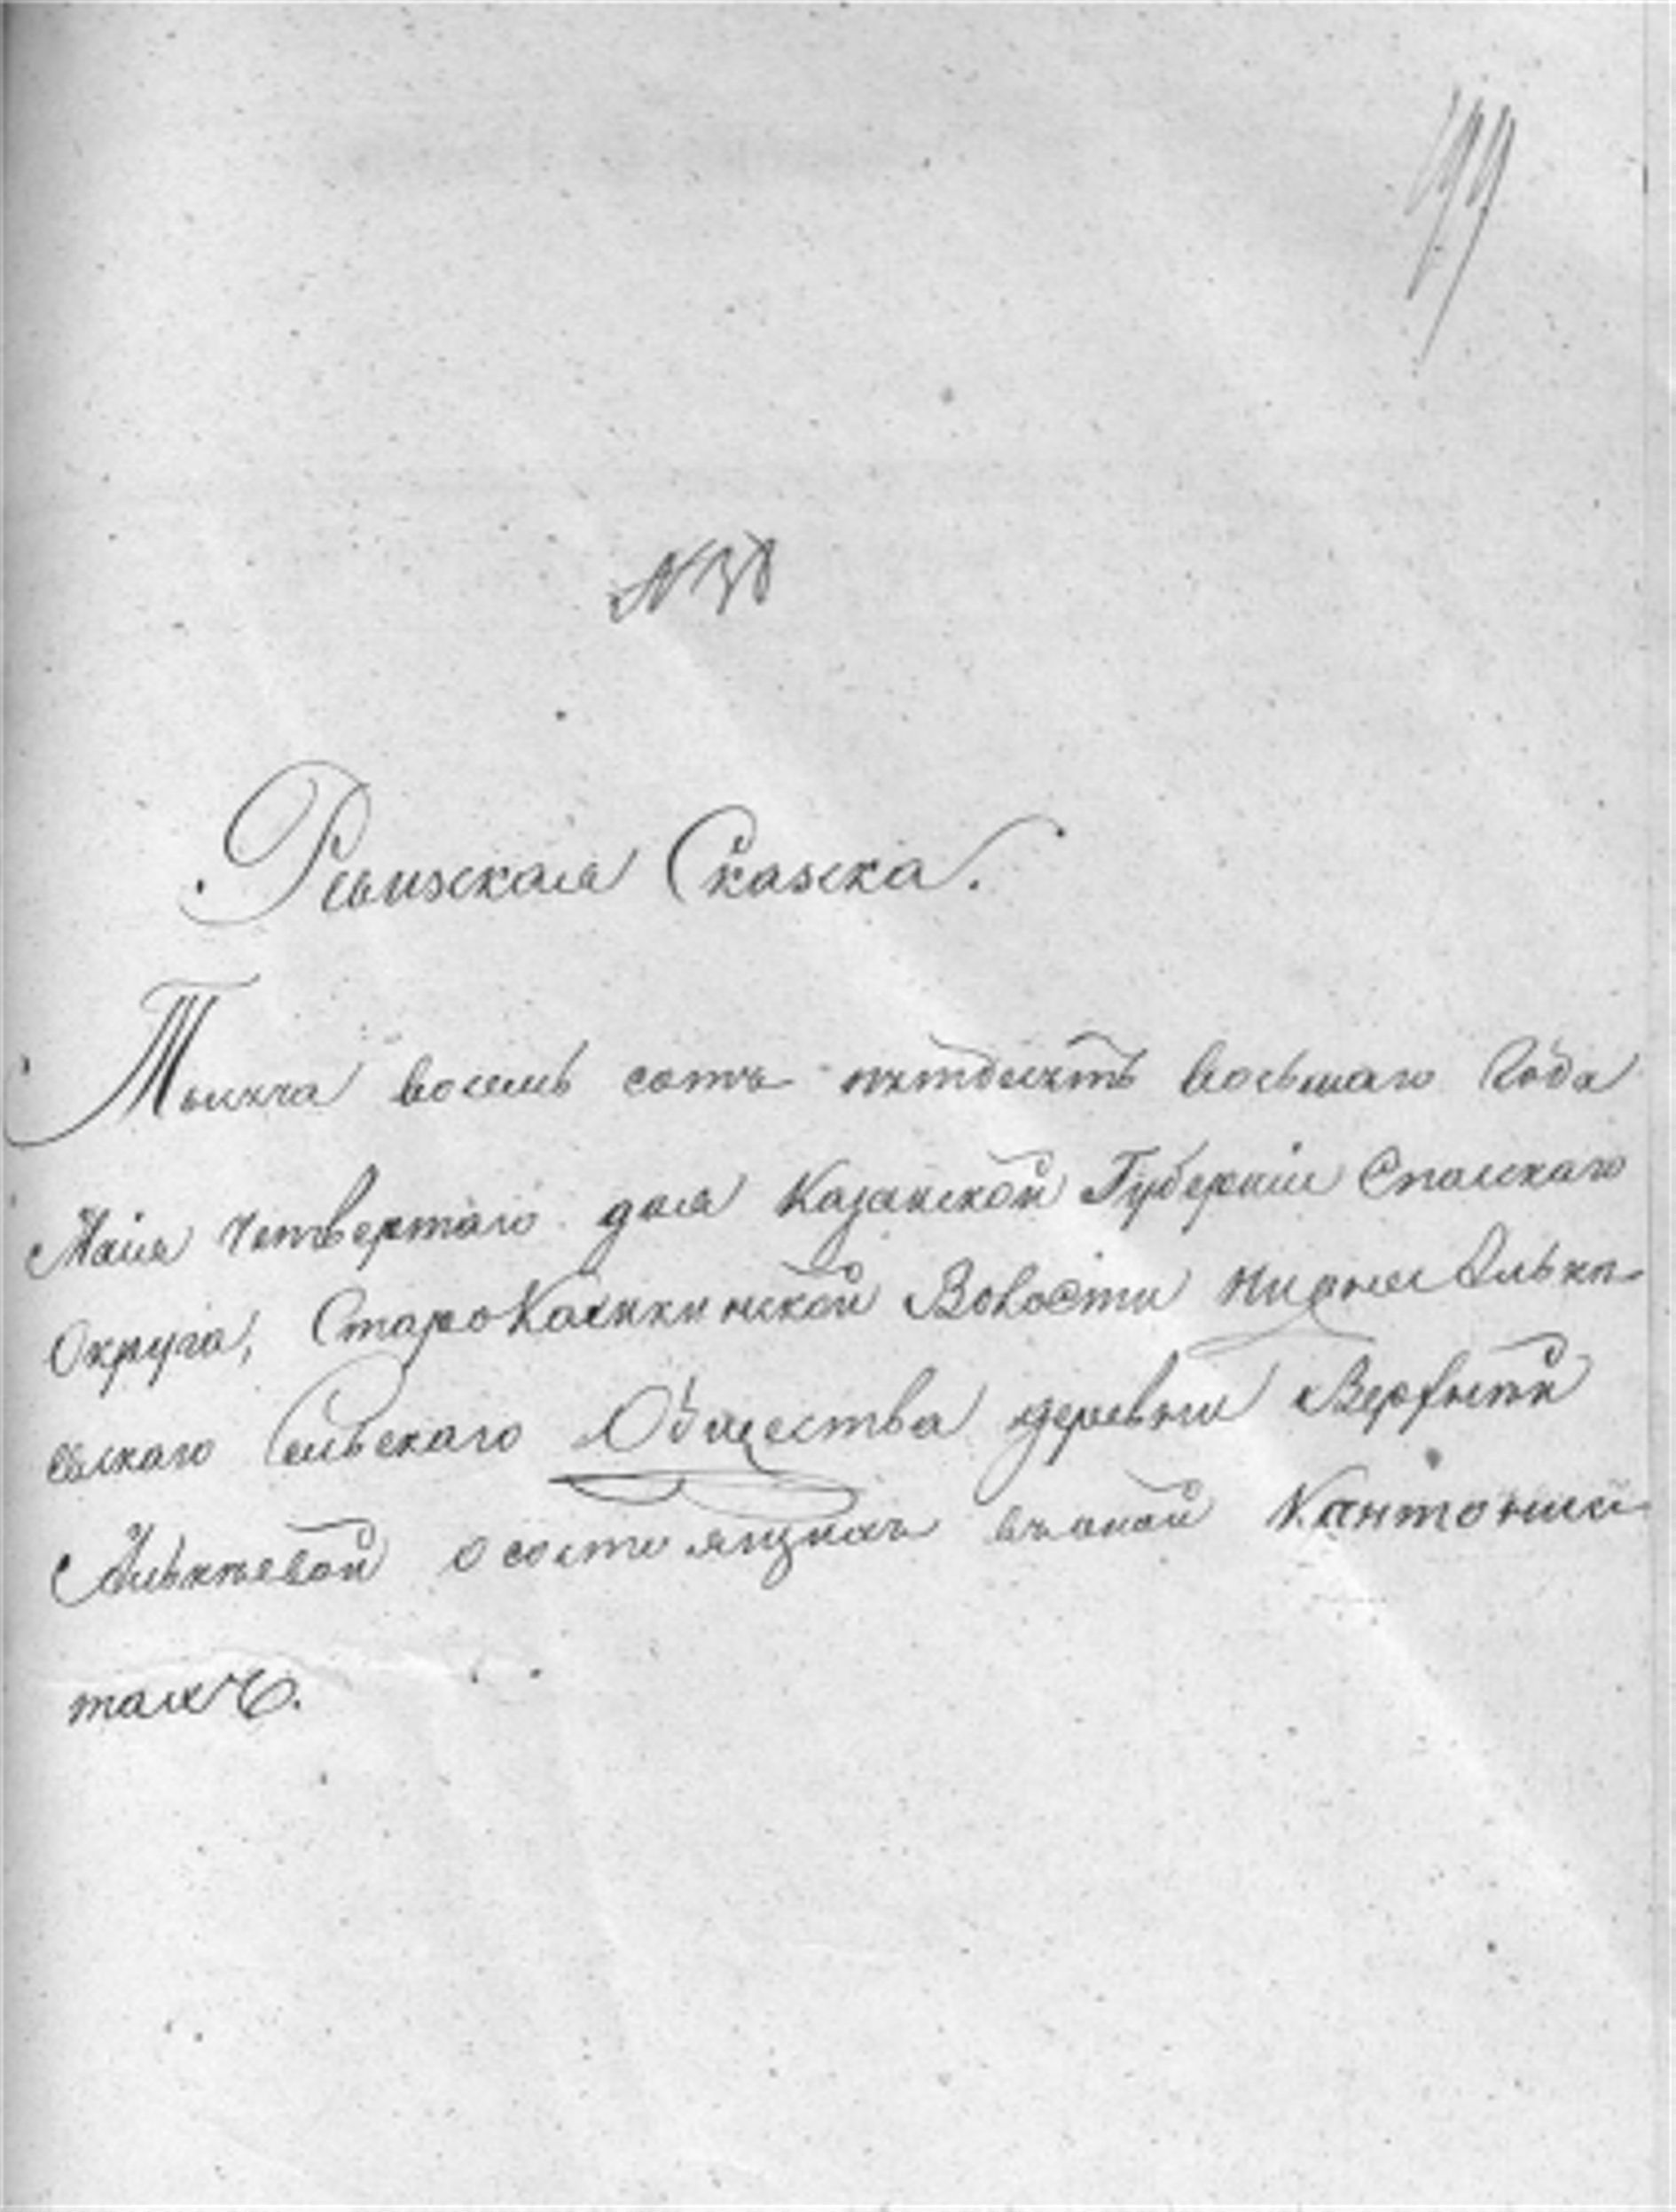 Ревизская Сказка.
Тысяча восемь сотъ пятдесятъ восьмаго Года
Маія четвертаго дня Казанской Губерніи Спаскаго
Округа, Старо Камкинской Волости Нижне Альке
евскаго Сельскаго Общества деревни Верхней
Алькеевой о состоящихъ въ оной Кантонис
тахъ.